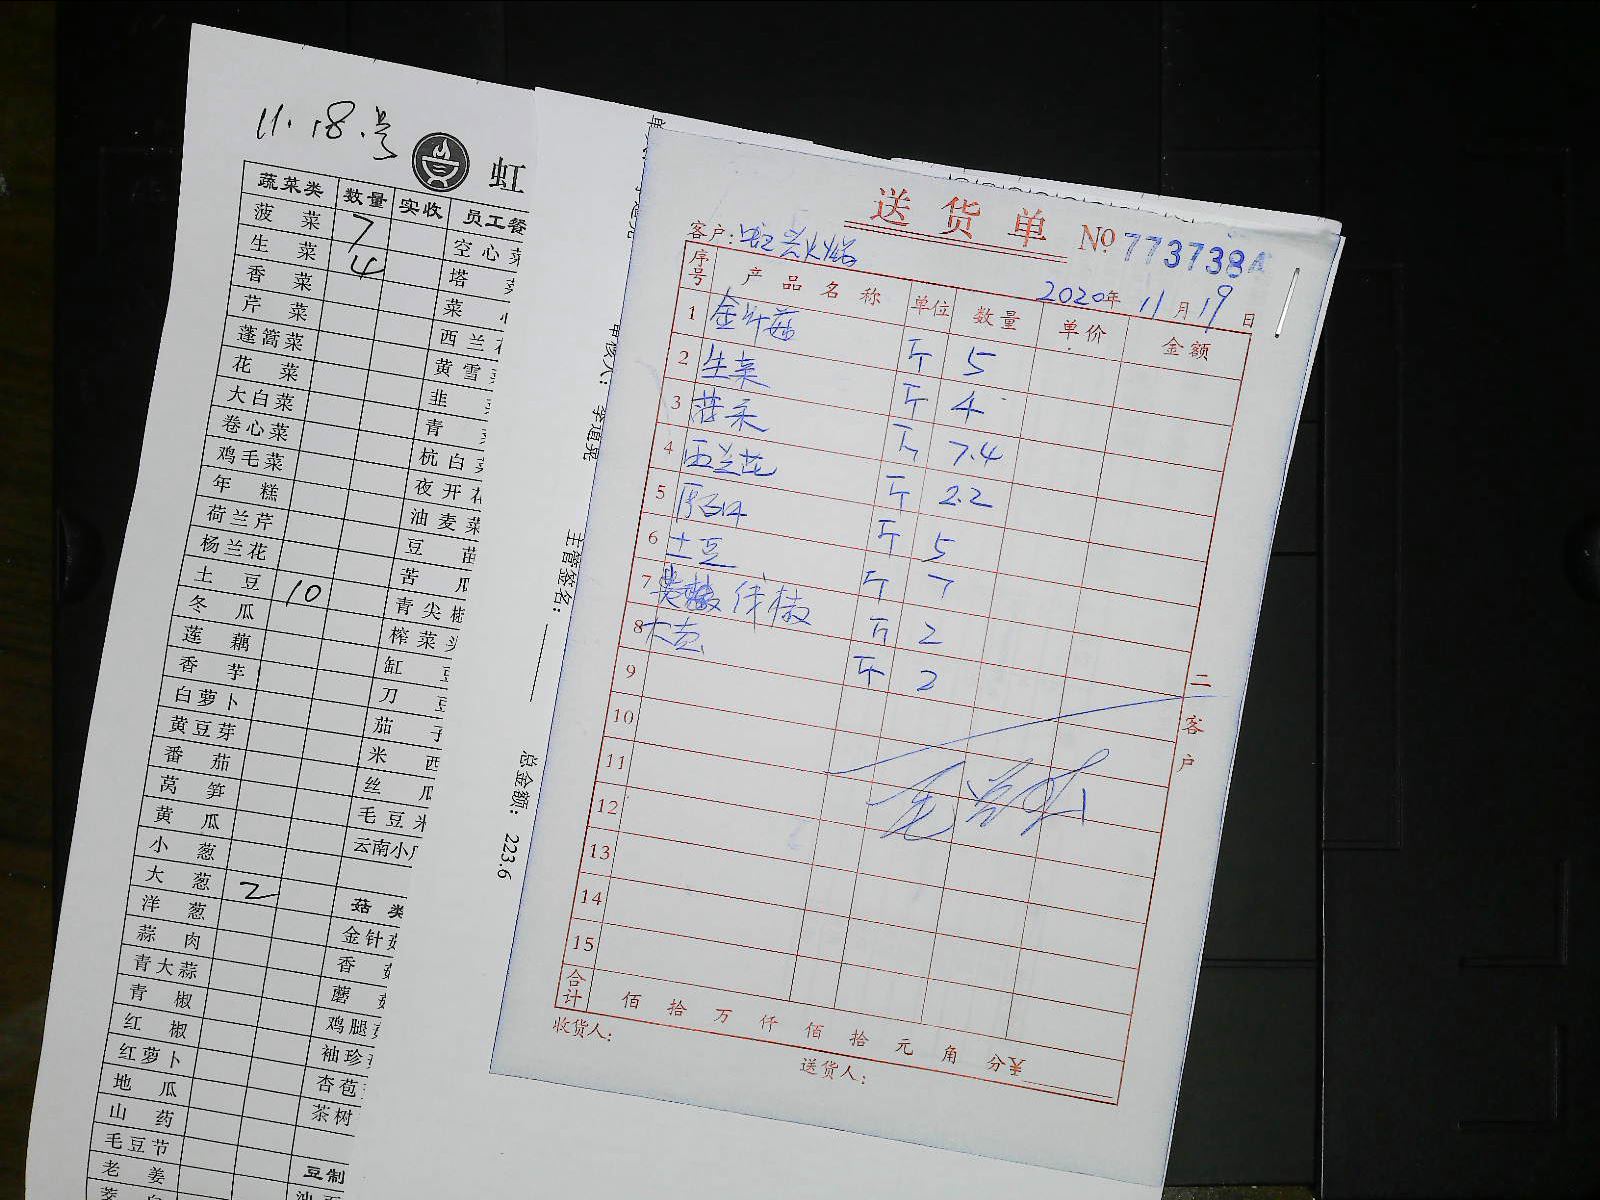 11.18.号
虹
蔬菜类 数量 实收 员工餐
菠菜 7 空心菜
生菜 4 塔
香菜 菜
芹菜 西兰花
蓬蒿菜 黄雪
花菜 韭
大白菜 青
卷心菜 杭白
鸡毛菜 夜开花
年糕 油麦菜
荷兰芹 豆苗
杨兰花 苦瓜
土豆 10 青尖椒
冬瓜 榨菜头
莲藕 缸豆
香芋 刀豆
白萝卜 茄子
黄豆芽 米西
番茄 丝瓜
莴笋 毛豆米
黄瓜 云南小
小葱
大葱 2 菇类
洋葱 金针菇
蒜肉 香菇
青大蒜 蘑菇
青椒 鸡腿
红椒 袖珍
红萝卜 杏苞
地瓜 茶树
山药
毛豆节 豆制
老姜
主管签名：
总金额： 223.6
送货单 NO 773738
客户：虹 火焰
2020年 11月 19日
序号 产品名称 单位 数量 单价 金额
1 金针菇 斤 5
2 生菜 斤 4
3 菠菜 斤 7.4
4 西兰花 斤 2.2
5 斤 5
6 土豆 斤 7
7 椒 斤 2
8 大 斤 2
9
10
11
12
13
14
15
合计 佰 拾 万 仟 佰 拾 元 角 分 ¥
收货人： 送货人：
二 客户